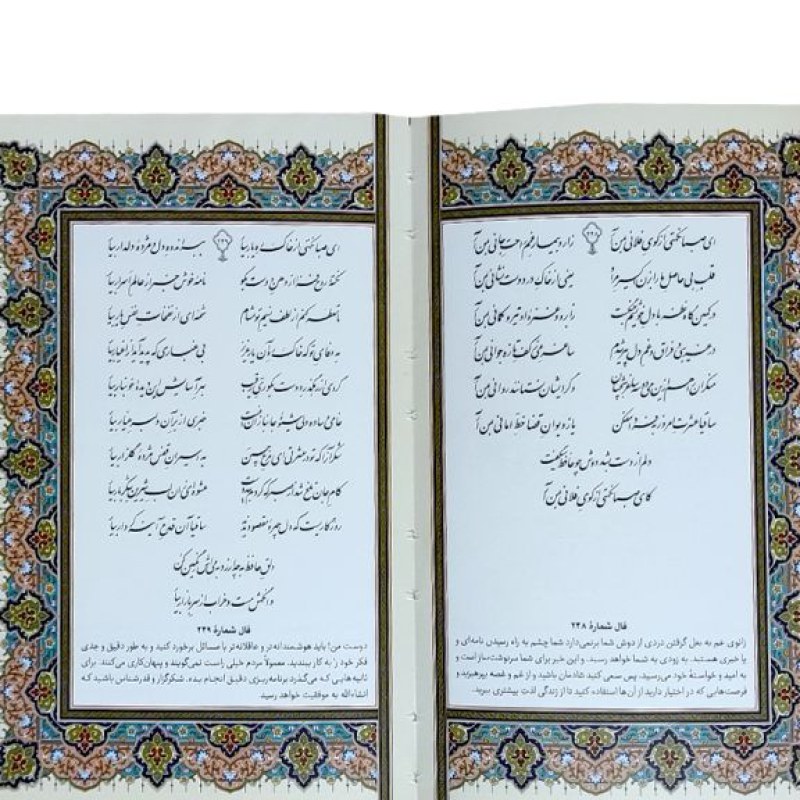 ای صبا نکهتی از کوی فلانی به من آر زار و بیمار غمم راحت جانی به من آر
۲۴۸
قلب بی حاصل ما را بزن اکسیر مراد یعنی از خاک در دوست نشانی به من آر
در کمین‌گاه نظر با دل خویشم جنگ است ز ابرو و غمزه او تیر و کمانی به من آر
در غریبی و فراق و غم دل پیر شدم ساغر می ز کف تازه جوانی به من آر
منکران را هم از این می دو سه ساغر بچشان وگر ایشان نستانند روانی به من آر
ساقیا عشرت امروز به فردا مفکن یا ز دیوان قضا خط امانی به من آر
دلم از دست بشد دوش چو حافظ می‌گفت
کای صبا نکهتی از کوی فلانی به من آر
فال شمارهٔ ۲۴۸
زانوی غم به بغل گرفتن دردی از دوش شما برنمی‌دارد شما چشم به راه رسیدن نامه‌ای و
یا خبری هستید. به زودی به شما خواهد رسید. و این خبر برای شما سرنوشت‌ساز است و
به امید و خواستهٔ خود می‌رسید. پس سعی کنید شادمان باشید و از غم و غصه بپرهیزید و
فرصت‌هایی که در اختیار دارید از آن‌ها استفاده کنید تا از زندگی لذت بیشتری ببرید.
ای صبا نکهتی از خاک ره یار بیار ببر اندوه دل و مژده دلدار بیار
۲۴۹
نکته‌ای روح فزا از دهن دوست بگو نامه‌ای خوش خبر از عالم اسرار بیار
تا معطر کنم از لطف نسیم تو مشام شمه‌ای از نفحات نفس یار بیار
به وفای تو که خاک ره آن یار عزیز بی غباری که پدید آید از اغیار بیار
گردی از رهگذر دوست به کوری رقیب بهر آسایش این دیده خونبار بیار
خامی و ساده دلی شیوه جانبازان نیست خبری از بر آن دلبر عیار بیار
شکر آن را که تو در عشرتی ای مرغ چمن به اسیران قفس مژده گلزار بیار
کام جان تلخ شد از صبر که کردم بی دوست عشوه‌ای زان لب شیرین شکربار بیار
روزگاریست که دل چهره مقصود ندید ساقیا آن قدح آینه کردار بیار
دلق حافظ به چه ارزد به می‌اش رنگین کن
وانگهش مست و خراب از سر بازار بیار
فال شمارهٔ ۲۴۹
دوست من! باید هوشمندانه‌تر و عاقلانه‌تر با مسائل برخورد کنید و به طور دقیق و جدی
فکر خود را به کار ببندید. معمولاً مردم خیلی راست نمی‌گویند و پنهان‌کاری می‌کنند. برای
ثانیه‌هایی که می‌گذرد برنامه‌ریزی دقیق انجام بده. شکرگزار و قدرشناس باشید که
انشاءالله به موفقیت خواهم رسید